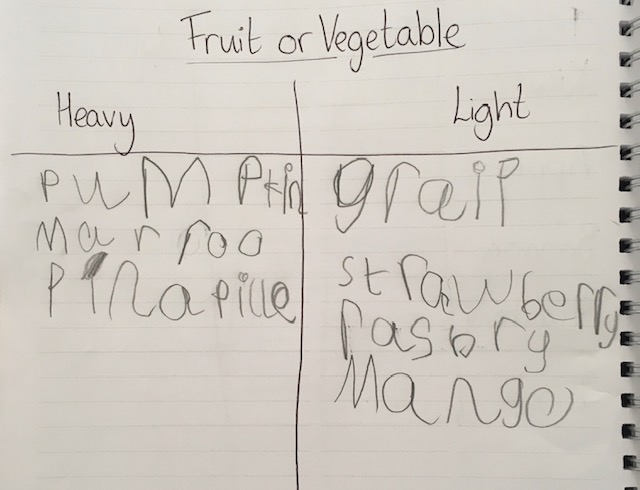 Fruit or Vegetable
Heavy
Light
PuMPtin
Marroo
PiNapille
graip
strawberry
rasbry
Mango